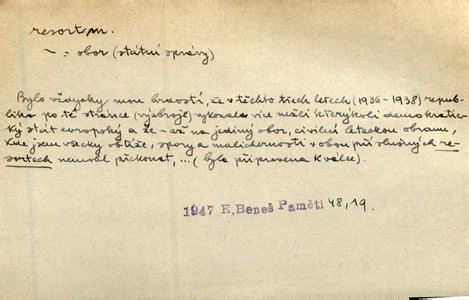 resort m.
~ = obor (státní správy)
Bylo vždycky mou hrdostí, že v těchto třech letech (1936-1938) republi-
ka po té stránce (výzbroje) vykonala více nežli kterýkoli demokratic-
ký stát evropský a že - až na jediný obor, civilní leteckou obranu,
kde jsem všecky obtíže, spory a malichernosti v obou příslušných re-
sortech nemohl překonat, ... (byla připravena k válce).
1947 E. Beneš Paměti 48,19.